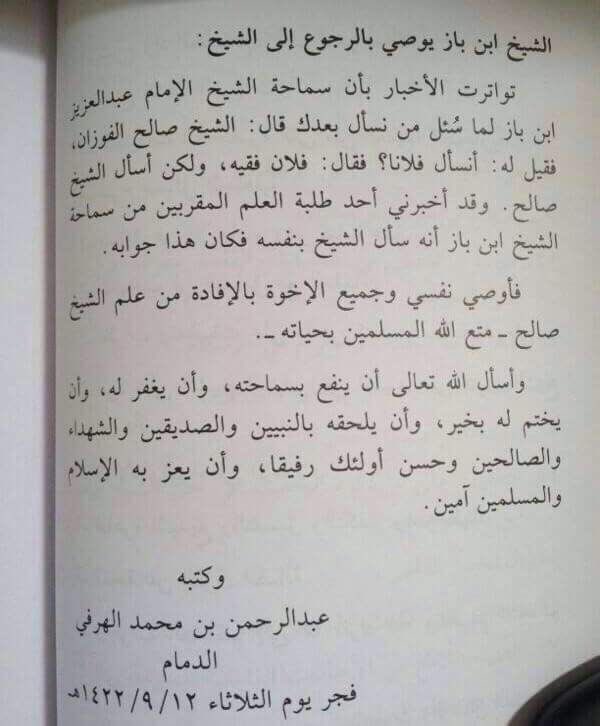 الشيخ ابن باز يوصي بالرجوع إلى الشيخ :
تواترت الأخبار بأن سماحة الشيخ الإمام عبدالعزيز
ابن باز لما سُئل من نسأل بعدك قال: الشيخ صالح الفوزان،
فقيل له: أنسأل فلانا؟ فقال: فلان فقيه، ولكن أسأل الشيخ
صالح. وقد أخبرني أحد طلبة العلم المقربين من سماحة
الشيخ ابن باز أنه سأل الشيخ بنفسه فكان هذا جوابه.
فأوصي نفسي وجميع الإخوة بالإفادة من علم الشيخ
صالح ـ متع الله المسلمين بحياته ـ.
وأسأل الله تعالى أن ينفع بسماحته، وأن يغفر له، وأن
يختم له بخير، وأن يلحقه بالنبيين والصديقين والشهداء
والصالحين وحسن أولئك رفيقا، وأن يعز به الإسلام
والمسلمين آمين.
وكتبه
عبدالرحمن بن محمد الهرفي
الدمام
فجر يوم الثلاثاء ١٤٢٢/٩/١٢هـ